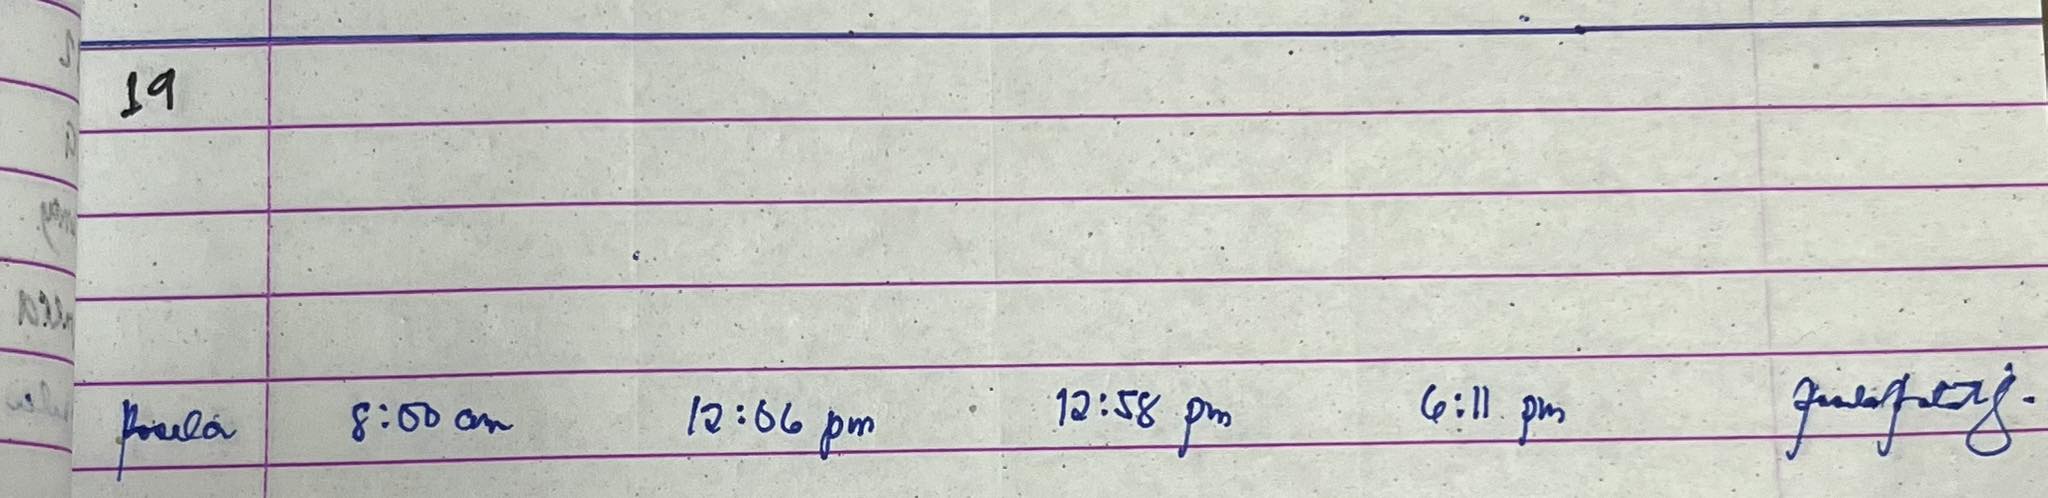 19
8:00 am 12:06 pm 12:58 pm 6:11 pm